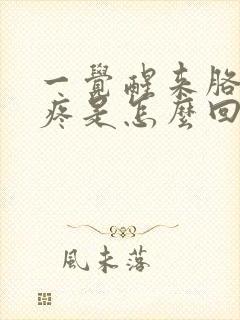 一覺醒来胳
疼是怎麼回
風未落